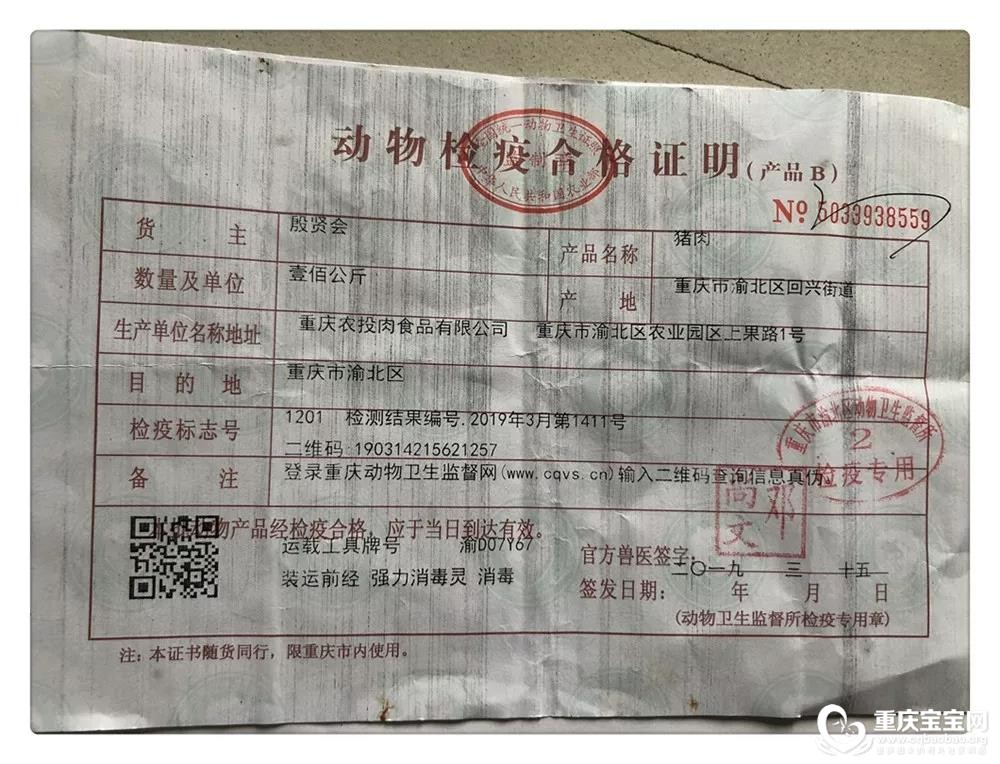 动物检疫合格证明(产品B)
全国统一动物卫生证明
监制章
中华人民共和国农业部
№ 5033938559
货主 殷贤会 产品名称 猪肉
数量及单位 壹佰公斤 产地 重庆市渝北区回兴街道
生产单位名称地址 重庆农投肉食品有限公司 重庆市渝北区农业园区上果路1号
目的地 重庆市渝北区
检疫标志号 1201 检测结果编号.2019年3月第1411号
二维码:190314215621257
备注 登录重庆动物卫生监督网(www.cqvs.cn)输入二维码查询信息真伪
重庆市渝北区动物卫生监督所
2
检疫专用
物产品经检疫合格，应于当日到达有效。
运载工具牌号 渝D07Y67
装运前经 强力消毒灵 消毒
官方兽医签字:
邓尚文
签发日期: 二〇一九年 三月 十五日
(动物卫生监督所检疫专用章)
注:本证书随货同行，限重庆市内使用。
重庆宝宝网
www.cqbaobao.org